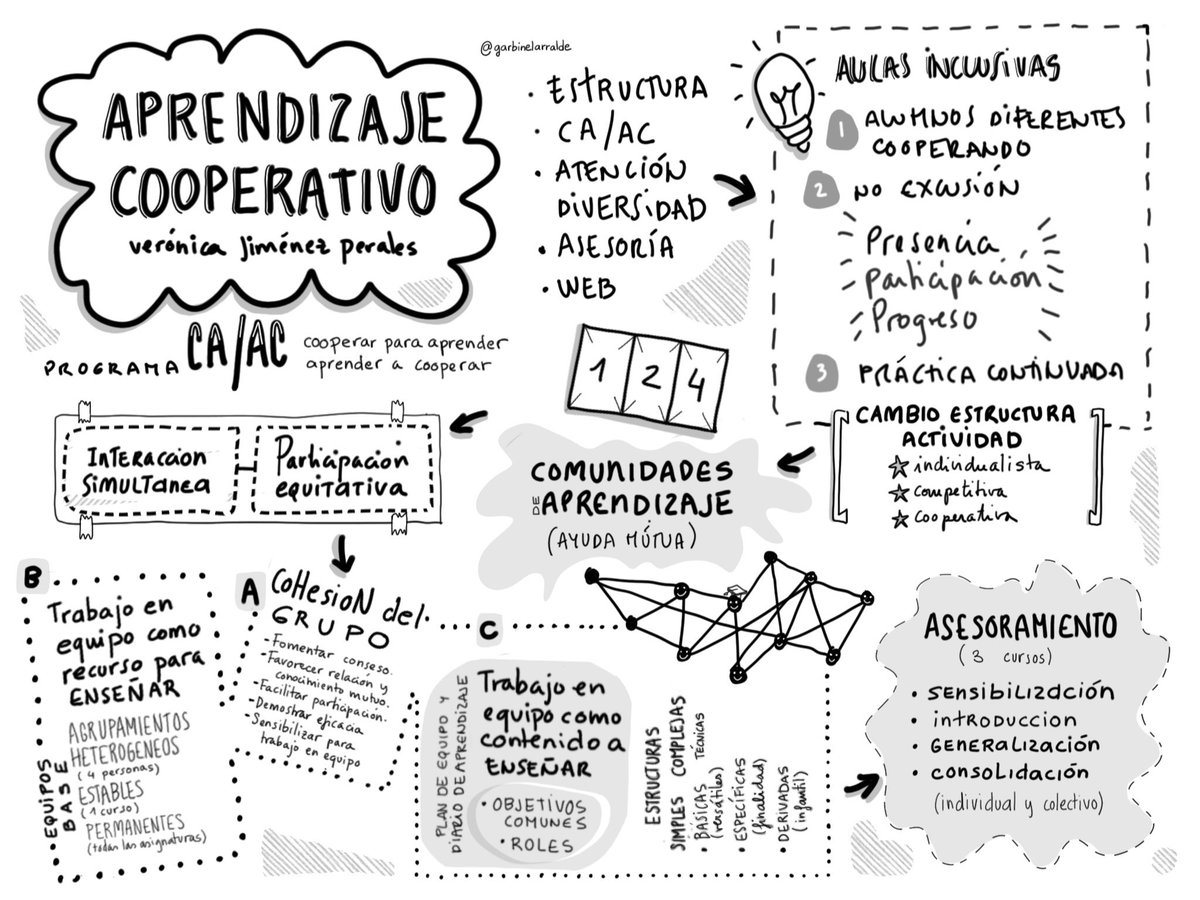 @garbinelarralde
APRENDIZAJE
COOPERATIVO
verónica Jiménez Perales
• ESTRUCTURA
• CA/AC
• ATENCIÓN
DIVERSIDAD
• ASESORÍA
• WEB
AULAS INCLUSIVAS
1 ALUMNOS DIFERENTES
COOPERANDO
2 NO EXCUSIÓN
Presencia
Participación
Progreso
3 PRÁCTICA CONTINUADA
PROGRAMA CA/AC
cooperar para aprender
aprender a cooperar
1 2 4
INTERACCION
SIMULTANEA
Participacion
EQUITATIVA
COMUNIDADES
DE APRENDIZAJE
(AYUDA MÚTUA)
CAMBIO ESTRUCTURA
ACTIVIDAD
☆ individualista
☆ competitiva
☆ cooperativa
B
Trabajo en
equipo como
recurso para
ENSEÑAR
EQUIPOS
BASE
AGRUPAMIENTOS
HETEROGENEOS
(4 personas)
ESTABLES
(1 curso)
PERMANENTES
(todas las asignaturas)
A
COHESION del
GRUPO
- Fomentar conseso.
- Favorecer relación y
conocimiento mutuo.
- Facilitar participación.
- Demostrar eficacia
- Sensibilizar para
trabajo en equipo
C
PLAN DE EQUIPO Y
DIARIO DE APRENDIZAJE
Trabajo en
equipo como
contenido a
ENSEÑAR
• OBJETIVOS
COMUNES
• ROLES
ESTRUCTURAS
SIMPLES COMPLEJAS
• BÁSICAS TÉCNICAS
(versátiles)
• ESPECÍFICAS
(finalidad)
• DERIVADAS
(infantil)
ASESORAMIENTO
(3 cursos)
• SENSIBILIZACIÓN
• INTRODUCCION
• GENERALIZACIÓN
• CONSOLIDACIÓN
(individual y colectivo)